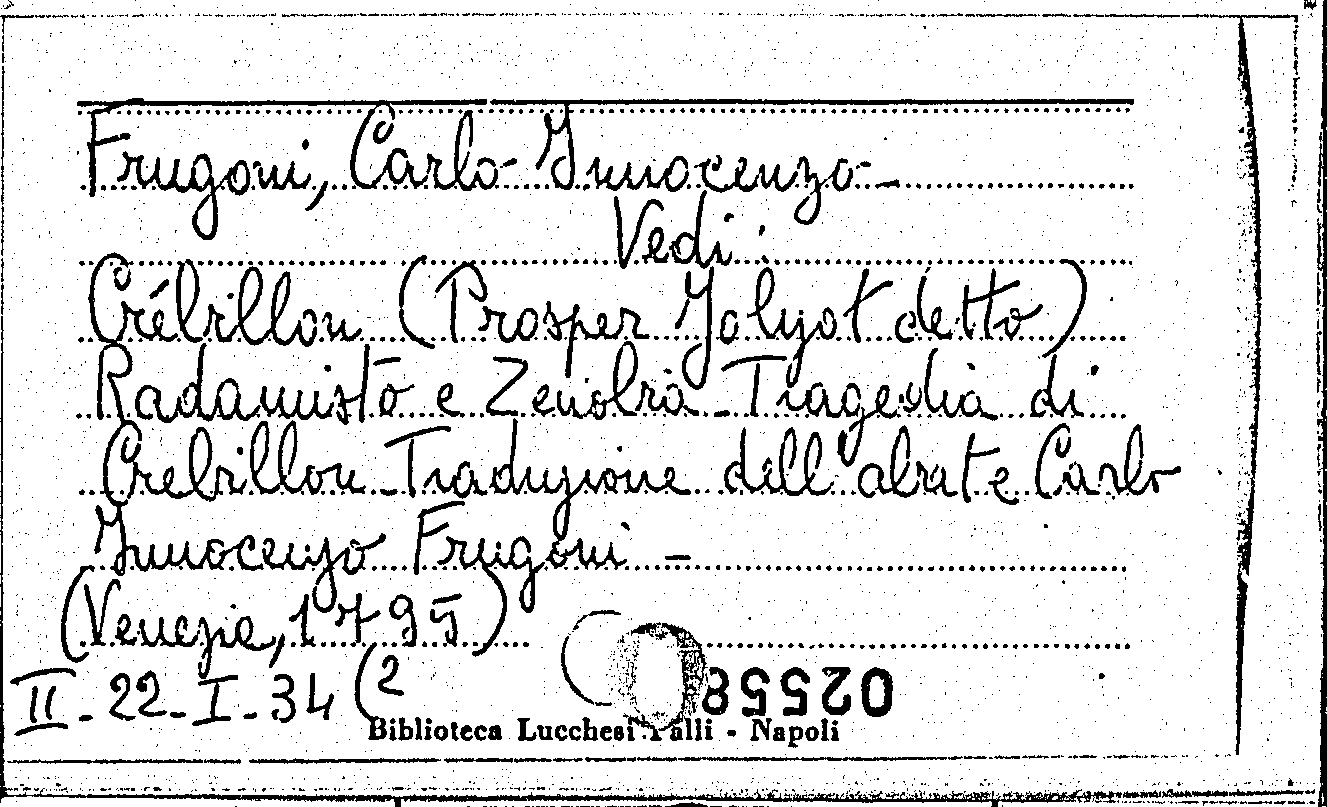 Frugoni, Carlo Innocenzo -
Vedi :
Crébillon (Prosper Jolyot detto)
Radamisto e Zenobia - Tragedia di
Crebillon - Traduzione dell'abate Carlo
Innocenzo Frugoni -
(Venezia, 1795)
II - 22 - I - 34 (2
02558
Biblioteca Lucchesi Palli - Napoli